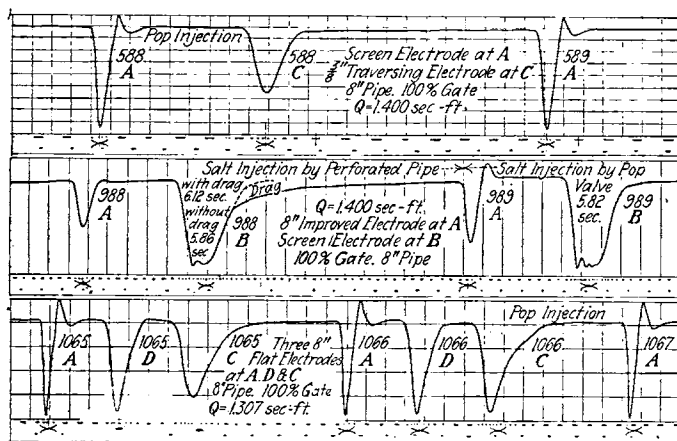 Pop Injection
588
A
588
C
Screen Electrode at A
3/8" Traversing Electrode at C
8" Pipe. 100% Gate
Q=1.400 sec-ft.
589
A
Salt Injection by Perforated Pipe
Salt Injection by Pop
Valve
5.82
sec.
988
A
with drag
6.12 sec.
without
drag
5.86
sec
drag
988
B
Q=1.400 sec-ft.
8" Improved Electrode at A
Screen Electrode at B
100% Gate. 8" Pipe
989
A
989
B
Pop Injection
1065
A
1065
D
1065
C
Three 8"
Flat Electrodes
at A. D & C
8" Pipe. 100% Gate
Q=1.307 sec-ft.
1066
A
1066
D
1066
C
1067
A